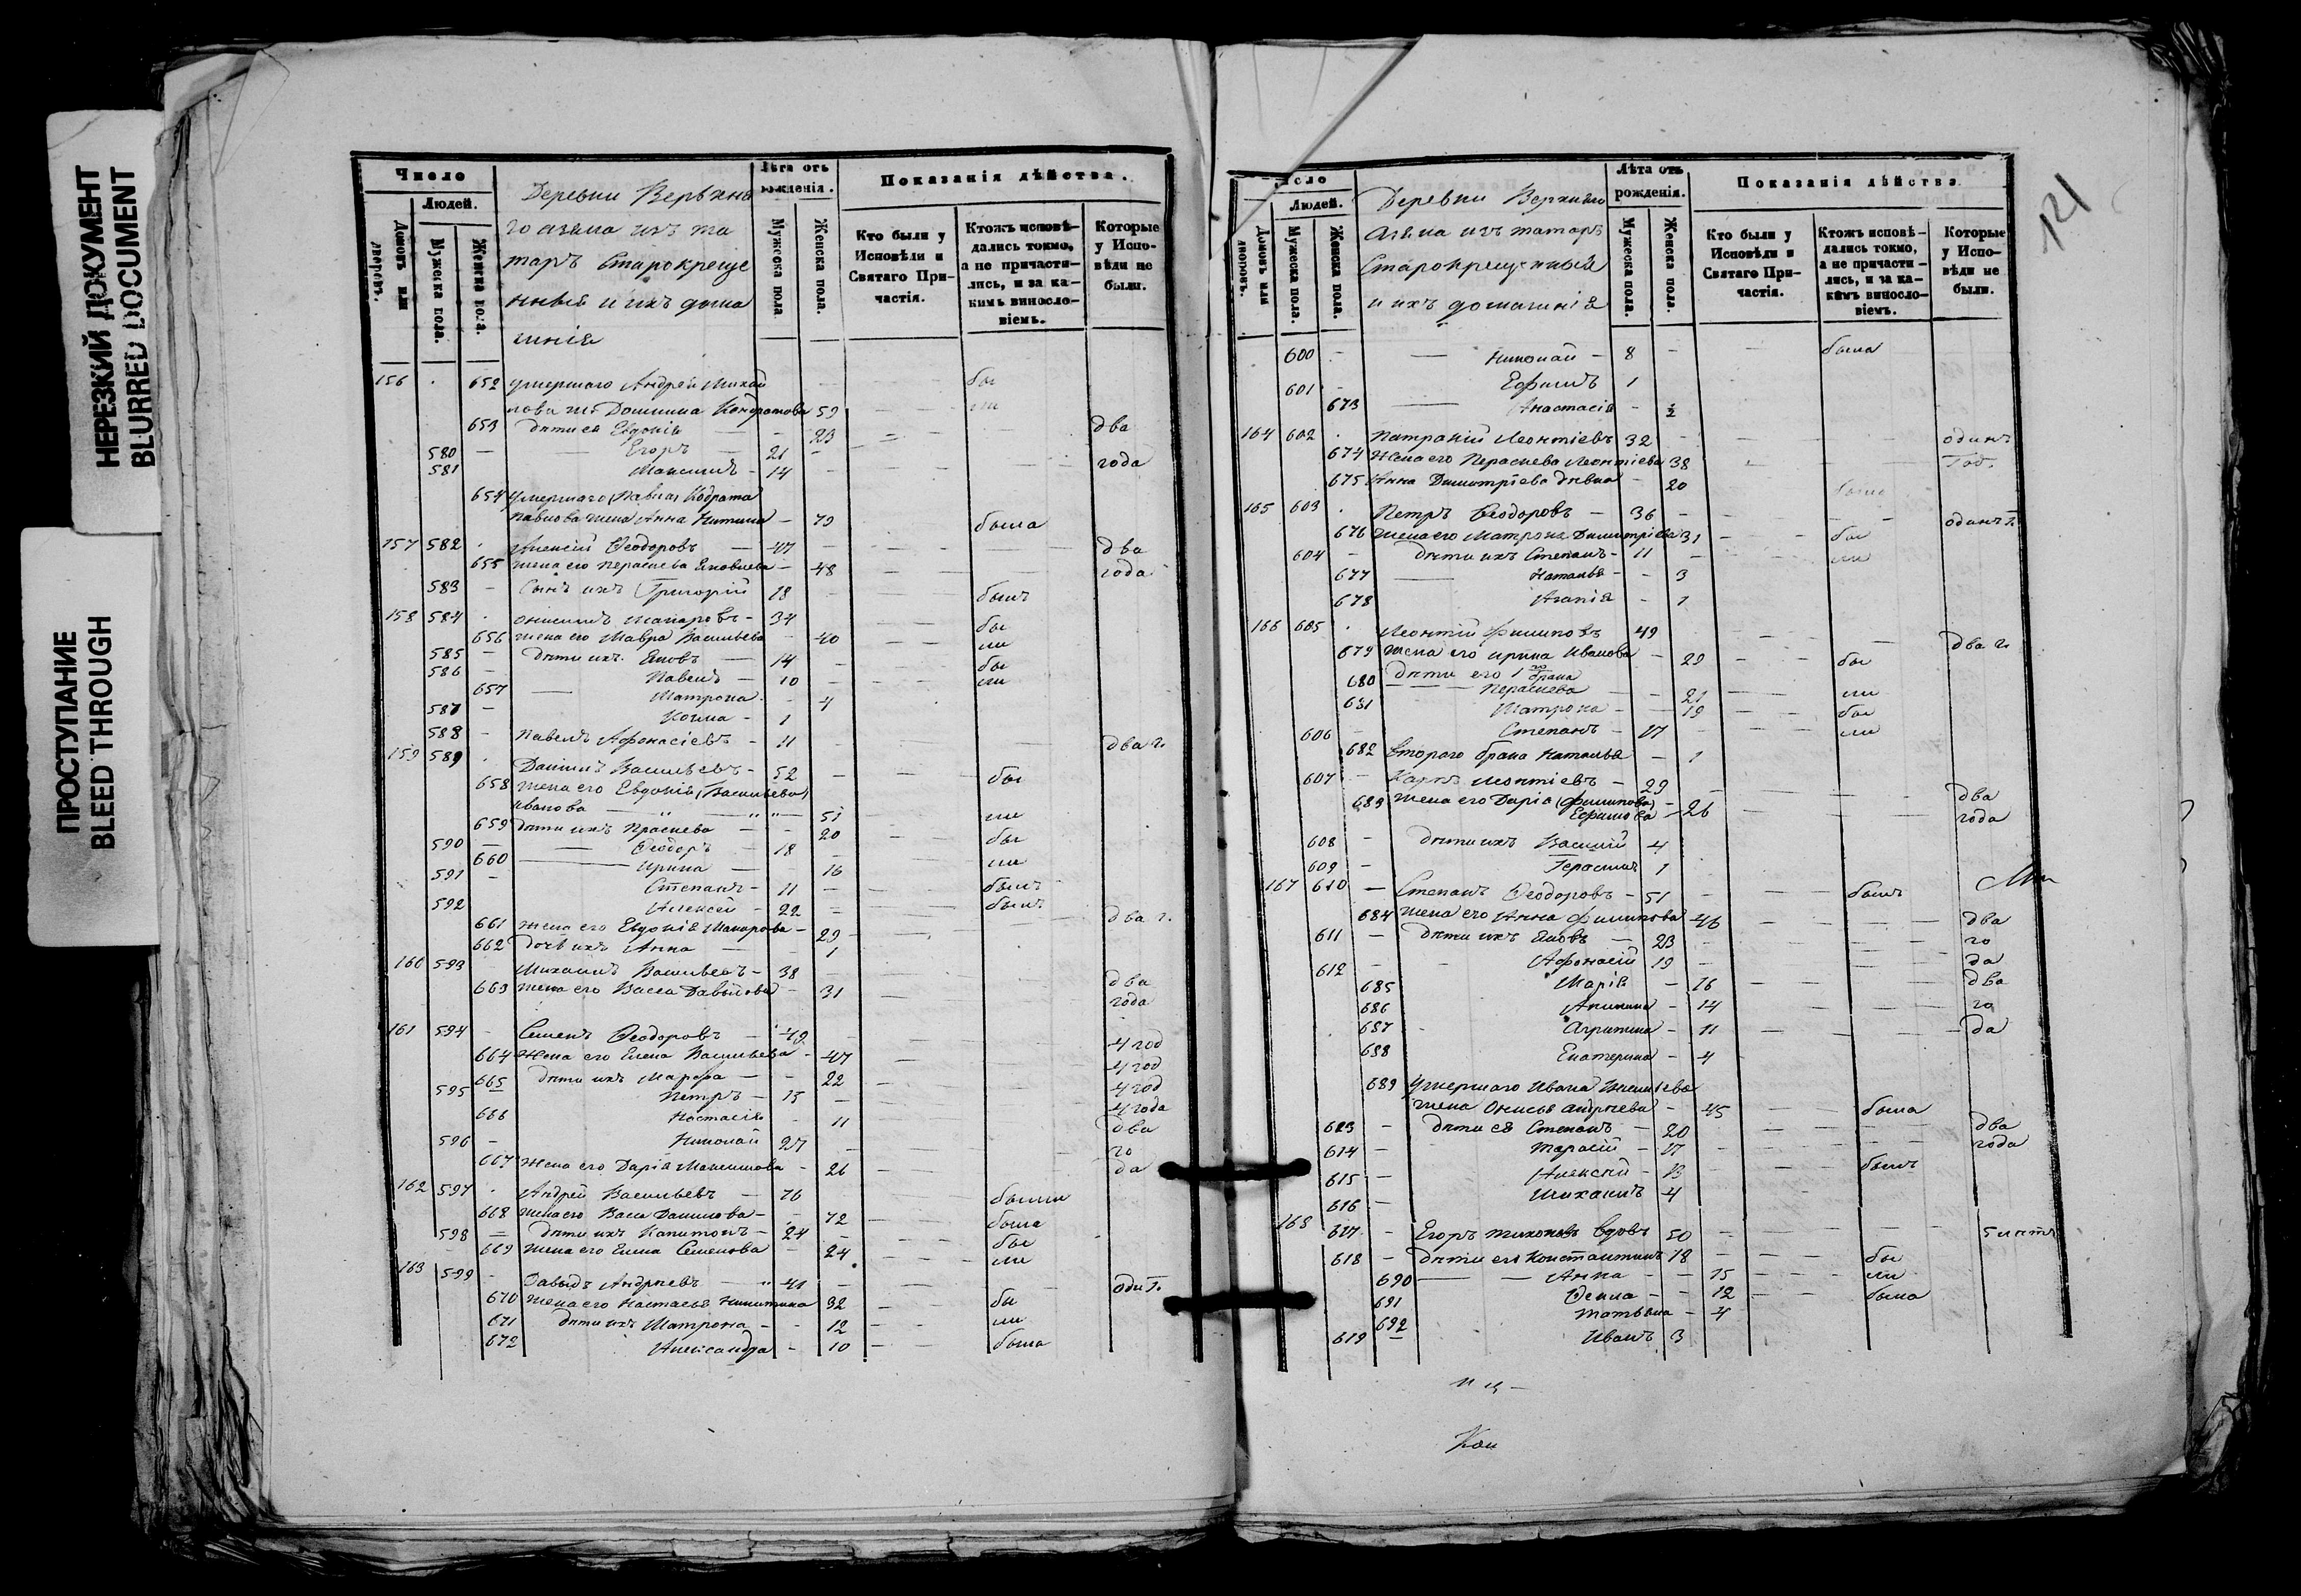 НЕРЕЗКИЙ ДОКУМЕНТ
BLURRED DOCUMENT
ПРОСТУПАНИЕ
BLEED THROUGH
Число
Людей.
Домовъ или дворовъ.
Мужеска пола.
Женска пола.
Деревни Верьхня
го азяка изъ та
таръ Старокреще
нныя и ихъ дома
шнія
Лѣта отъ рожденія.
Мужеска пола
Женска пола.
Показанія дѣйства.
Кто были у Исповѣди и Святаго Причастія.
Ктожъ исповѣдались токмо, а не причастились, и за какимъ винословіемъ.
Которые у Исповѣди не были.
156 652 умершаго Андрея Михай бы
лова же Домнина Кондратова 59 ли
653 дѣти ея Евдокія 23 два
580 Егоръ 21
581 Максимъ 14 года
654 умершаго (Павла) Кодрата
Павлова жена Анна Никитина 79 была
157 582 Алексѣй Ѳеодоровъ 47 два
655 жена его Параскева Яковлева 48 года
583 Сынъ ихъ Григорій 18 былъ
158 584 Онисимъ Макаровъ 34 бы
656 жена его Мавра Васильева 40 ли
585 дѣти ихъ Яковъ 14 бы
586 Павелъ 10 ли
657 Матрона 4
587 Козма 1
588 Павелъ Афонасіевъ 11 два г.
159 589 Даніилъ Васильевъ 52 бы
658 жена его Евдокія (Васильева)
Иванова 51 ли
659 дѣти ихъ Праскева 20 бы
590 Ѳеодоръ 18
660 Ирина 16 ли
591 Степанъ 11 былъ
592 Алексей 22 былъ
661 жена его Евдокія Макарова 29 два г.
662 дочь ихъ Анна 1
160 593 Михаилъ Васильевъ 38 два
663 жена его Васса Давыдова 31 года
161 594 Семенъ Ѳеодоровъ 49 4 год
664 Жена его Елена Васильева 47 4 год
665 дѣти ихъ Марфа 22 4 год
595 Петръ 13 4 года
666 Настасія 11 два
596 Николай 27 го
667 Жена его Дарія Максимова 26 да
162 597 Андрей Васильевъ 76 были
668 жена его Васса Данилова 72 была
598 дѣти ихъ Капитонъ 24 бы
669 жена его Елена Семенова 24 ли
163 599 Давыдъ Андреевъ 41 оди г.
670 жена его Настасья Никитина 32 бы
671 дѣти ихъ Матрона 12 ли
672 Александра 10 была
121
Число
Людей.
Домовъ или дворовъ.
Мужеска пола.
Женска пола.
Деревни Верхняго
Азяка изъ татаръ
Старокрещенныя
и ихъ домашнія
Лѣта отъ рожденія.
Мужеска пола
Женска пола.
Показанія дѣйства
Кто были у Исповѣди и Святаго Причастія.
Ктожъ исповѣдались токмо, а не причастились, и за какимъ винословіемъ.
Которые у Исповѣди не были.
600 Николай 8 была
601 Ефимъ 1
673 Анастасія ½
164 602 Патракій Леонтіевъ 32 одинъ
674 Жена его Параскева Леонтіева 38 год.
675 Анна Димитріева дѣвка 20 была
165 603 Петръ Ѳеодоровъ 36 одинъ г.
676 Жена его Матрона Димитріева 31 бы
604 дѣти ихъ Степанъ 11 ли
677 Наталья 3
678 Агапія 1
166 605 Леонтій Филиповъ 49 два г.
679 жена его Ирина Иванова 29 бы
680 дѣти его 1го брака
Параскева 21 ли
681 Матрона 19 бы
606 Степанъ 17 ли
682 втораго брака Наталья 1
607 Карпъ Леонтіевъ 29 два
683 жена его Дарія (Филипова)
Ефимова 26 года
608 дѣти ихъ Василій 4
609 Герасимъ 1
167 610 Степанъ Ѳеодоровъ 51 былъ
684 жена его Анна Филипова 46 два
611 дѣти ихъ Яковъ 23 го
612 Афонасій 19 да
685 Марія 16 два
686 Акилина 14 го
687 Агрипина 11 да
688 Екатерина 4
689 умершаго Ивана
жена Онисья Андреева 45 была
613 дѣти ея Степанъ 20 два
614 Тарасій 17 года
615 Алексѣй 13 былъ
616 Михаилъ 4
168 617 Егоръ Тихоновъ вдовъ 50 5 лѣтъ
618 дѣти его Константинъ 18 бы
690 Анна 15 ли
691 Ѳекла 12 была
692 Татьяна 4
619 Иванъ 3